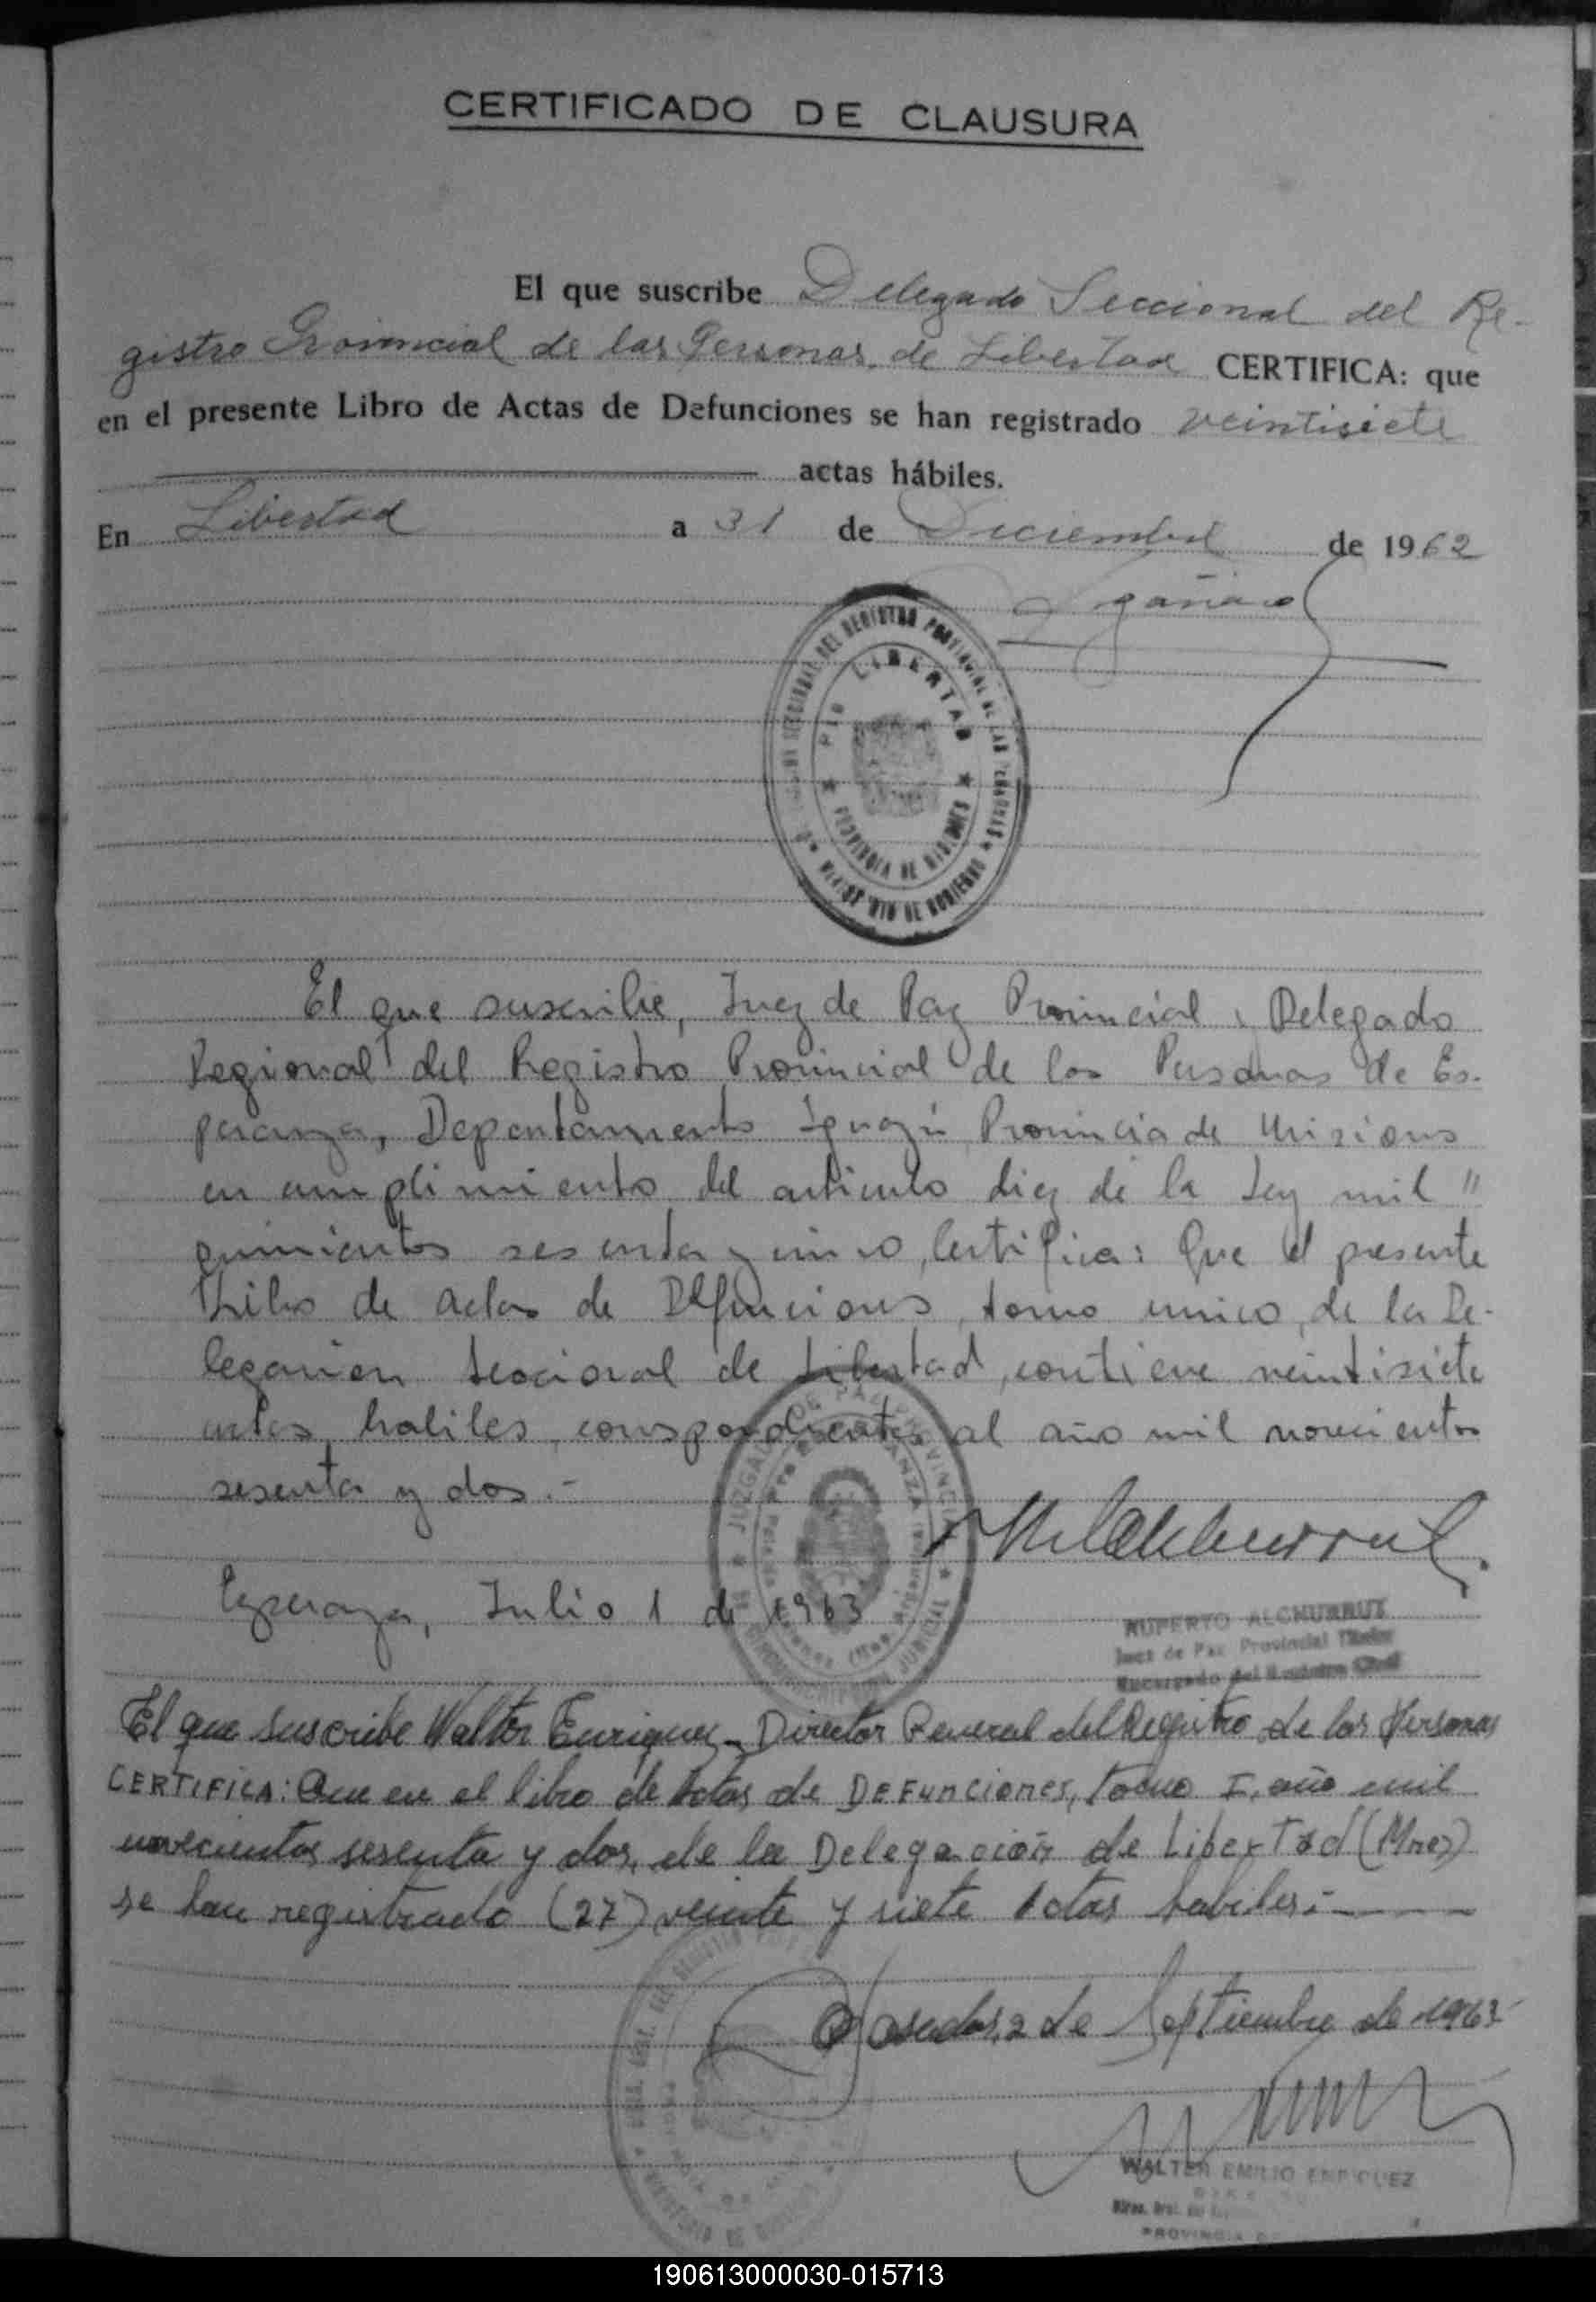 CERTIFICADO DE CLAUSURA
El que suscribe Delegado Seccional del Re-
gistro Provincial de las Personas de Libertad CERTIFICA: que
en el presente Libro de Actas de Defunciones se han registrado veintisiete
actas hábiles.
En Libertad a 31 de Diciembre de 1962
DEL REGISTRO PROVINCIAL DE LAS PERSONAS
LIBERTAD
PROVINCIA DE MISIONES
El que suscribe, Juez de Paz Provincial y Delegado
Regional del Registro Provincial de las Personas de Es-
peranza, Departamento Iguazú Provincia de Misiones
en cumplimiento del articulo diez de la Ley mil "
quinientos sesenta y cinco, Certifica: Que el presente
Libro de actas de Defunciones, tomo unico, de la De-
legacion Seccional de Libertad, contiene veintisiete
actas habiles, correspondientes al año mil novecientos
sesenta y dos.-
JUZGADO DE PAZ PROVINCIAL
Esperanza, Julio 1 de 1963
RUPERTO ALCHURRUT
Juez de Paz Provincial Titular
Encargado del Registro Civil
El que suscribe Walter Enriquez - Director General del Registro de las Personas
CERTIFICA: Que en el libro de Actas de DEFunciones, tomo I, año mil
novecientos sesenta y dos, de la Delegación de Libertad (Mnes)
se han registrado (27) veinte y siete Actas habiles.-
Posadas, 2 de Septiembre de 1963
WALTER EMILIO ENRIQUEZ
PROVINCIA
190613000030-015713